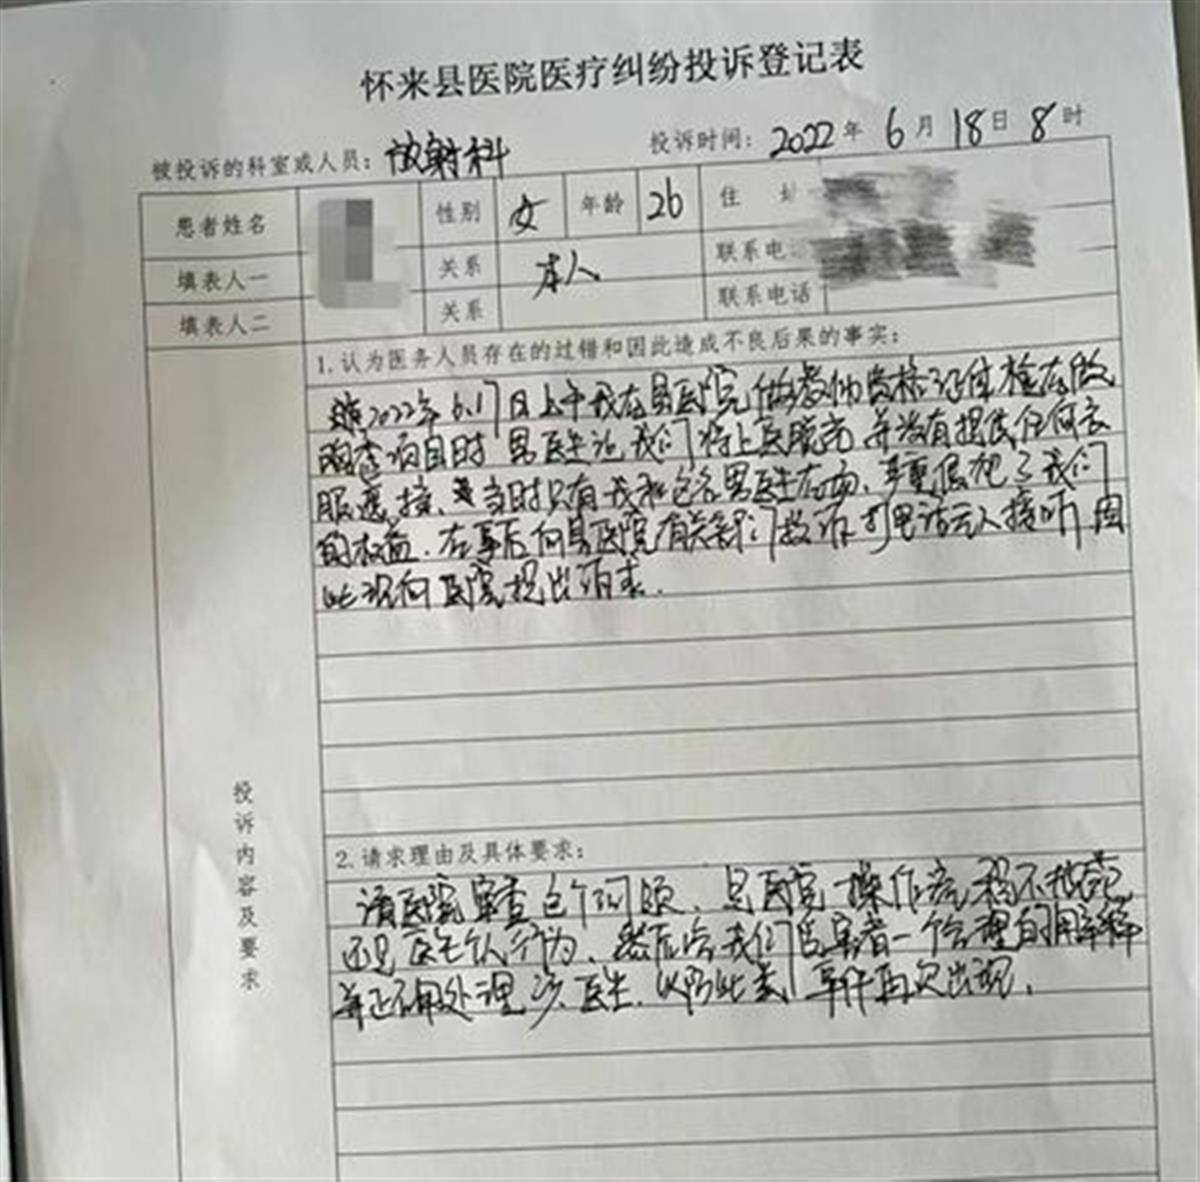 怀来县医院医疗纠纷投诉登记表
被投诉的科室或人员：放射科 投诉时间：2022年6月18日8时
患者姓名 性别 女 年龄 26 住 址
填表人一 关系 本人 联系电话
填表人二 关系 联系电话
1.认为医务人员存在的过错和因此造成不良后果的事实：
2022年6.17日上午我在县医院做教师资格证体检在做
胸透项目时 男医生让我们将上衣脱光 并没有提供任何衣
服遮挡、当时只有我和这名男医生在场、严重侵犯了我们
的权益、在事后向县医院有关部门投诉打电话无人接听 因
此现向医院提出诉求.
投诉内容及要求
2.请求理由及具体要求：
请医院审查这个问题、是医院操作流程不规范
还是医生个人行为、然后给我们受害者一个合理的解释
并正确处理该医生.以防此类事件再次出现.